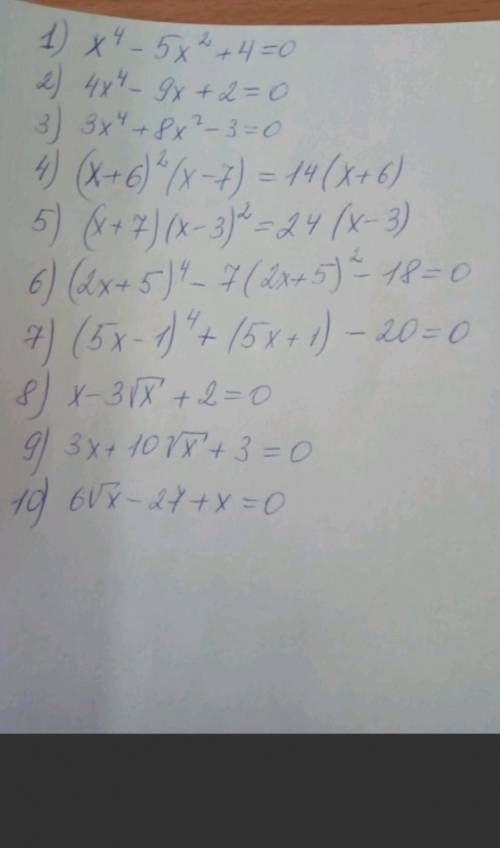 1) x⁴ - 5x² + 4 = 0
2) 4x⁴ - 9x + 2 = 0
3) 3x⁴ + 8x² - 3 = 0
4) (x+6)² (x-7) = 14 (x+6)
5) (x+7) (x-3)² = 24 (x-3)
6) (2x+5)⁴ - 7 (2x+5)² - 18 = 0
7) (5x-1)⁴ + (5x+1) - 20 = 0
8) x - 3√x + 2 = 0
9) 3x + 10√x + 3 = 0
10) 6√x - 27 + x = 0